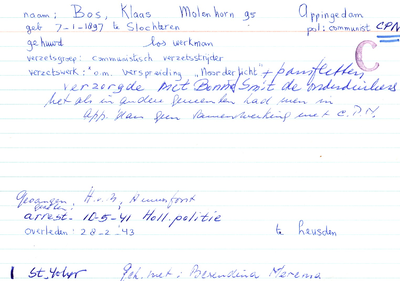 naam: Bos, Klaas Molenhorn 95 Appingedam
geb 7-1-1897 te Slochteren pol: communist CPN
gehuwd los werkman
verzetsgroep: communistisch verzetsstrijder C
verzetswerk: o.m. verspreiding "Noorderlicht" + pamfletten
verzorgde met Bennie Smit de onderduikers
Net als in andere gemeenten had men in
App. geen samenwerking met C.P.N.
Gevangen gezeten: H.v.B, Amersfoort
arrest- 10-5-41 Holl. politie
overleden: 28-2-'43 te Leusden
1 St. Geh. met: Berendina Merema